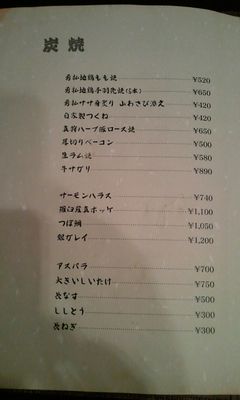 炭焼
知払地鶏もも焼 ¥520
知払地鶏手羽先焼(2本) ¥650
知払ササ身炙り 山わさび添え ¥420
自家製つくね ¥420
真狩ハーブ豚ロース焼 ¥650
厚切りベーコン ¥500
生ラム焼 ¥580
牛サガリ ¥890
サーモンハラス ¥740
羅臼産真ホッケ ¥1,100
つぼ鯛 ¥1,050
銀ガレイ ¥1,200
アスパラ ¥700
大きいしいたけ ¥750
長なす ¥500
ししとう ¥300
長ねぎ ¥300